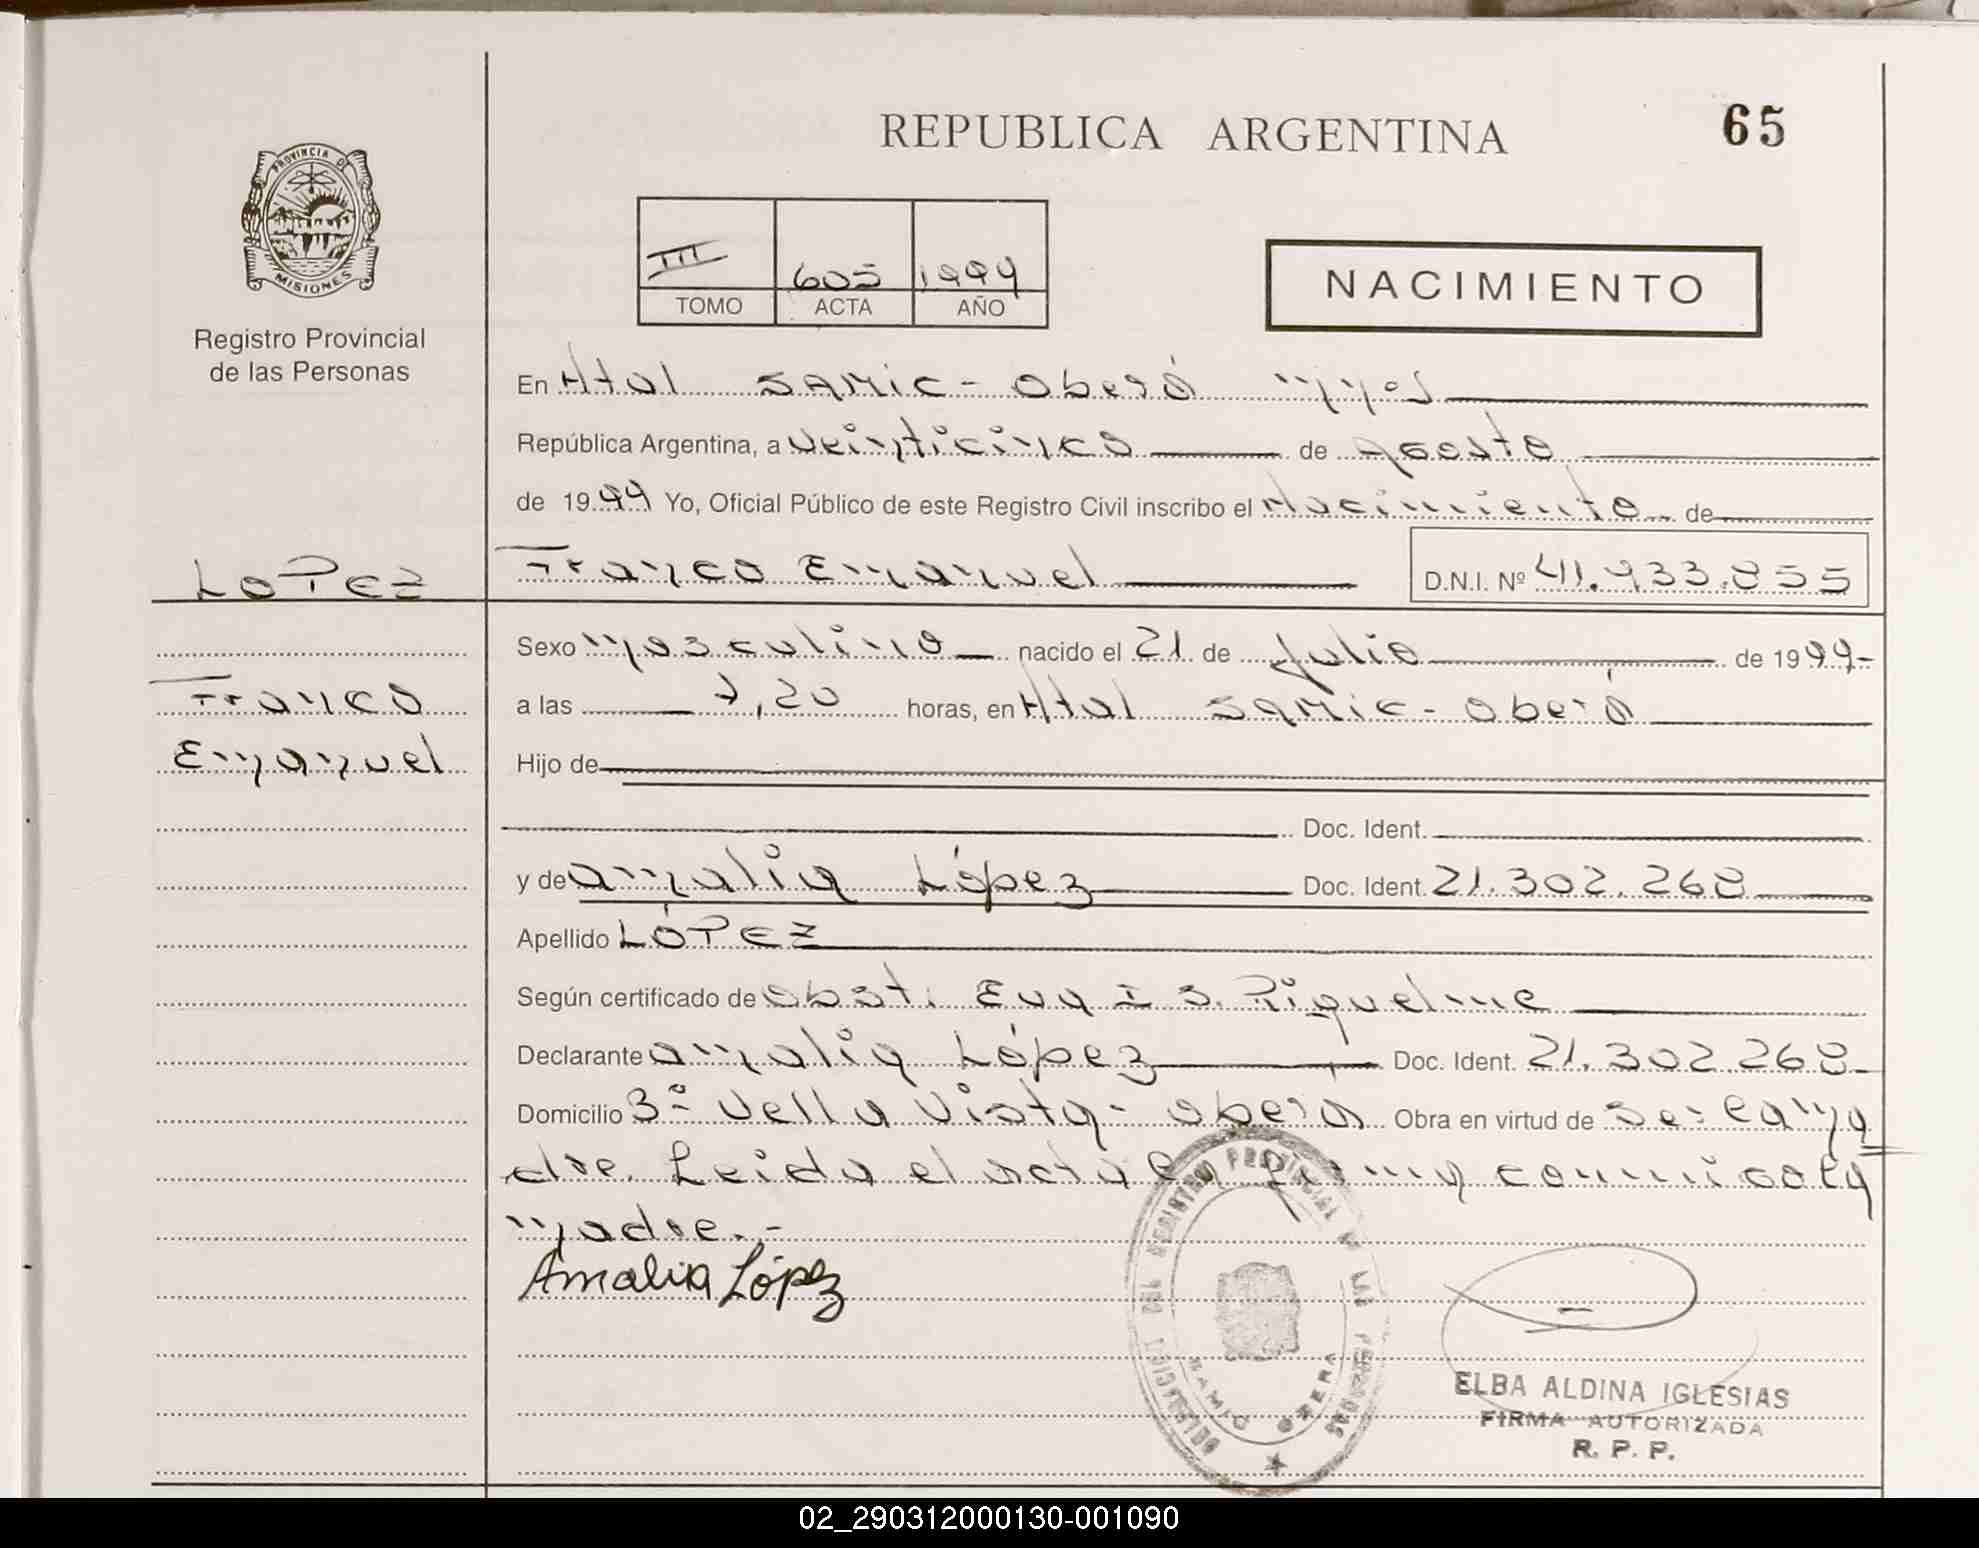 REPUBLICA ARGENTINA
65
PROVINCIA DE
MISIONES
Registro Provincial
de las Personas
III 605 1999
TOMO ACTA AÑO
NACIMIENTO
En Htal SAMIC - Oberá Mnes
República Argentina, a veinticinco de agosto
de 1999 Yo, Oficial Público de este Registro Civil inscribo el Nacimiento de
LOPEZ
Franco Emanuel D.N.I. Nº 41.933.855
Sexo masculino nacido el 21 de Julio de 1999-
Franco
a las 7,20 horas, en Htal SAMIC - Oberá
Emanuel
Hijo de
Doc. Ident.
y de Amalia López Doc. Ident. 21.302.268
Apellido LÓPEZ
Según certificado de Obst. Eva I S. Riquelme
Declarante Amalia López Doc. Ident. 21.302.268-
Domicilio Bº Vella Vista - Oberá Obra en virtud de Ser la ma
dre. Leida el acta la firma conmigo la
madre.-
Amalia López
DELEGACION DEL REGISTRO PROVINCIAL DE LAS PERSONAS
SAMIC OBERA
ELBA ALDINA IGLESIAS
FIRMA AUTORIZADA
R. P. P.
02_290312000130-001090